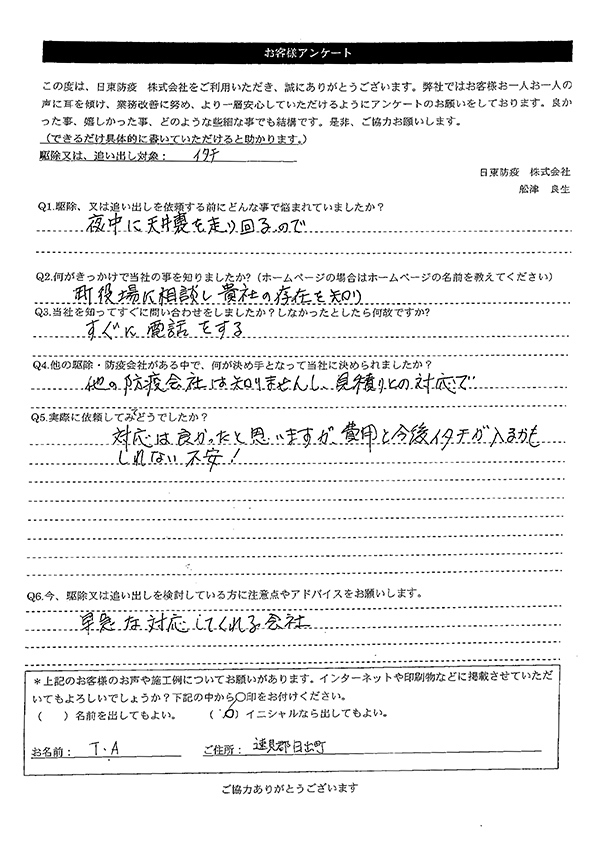 お客様アンケート
この度は、日東防疫　株式会社をご利用いただき、誠にありがとうございます。弊社ではお客様お一人お一人の
声に耳を傾け、業務改善に努め、より一層安心していただけるようにアンケートのお願いをしております。良か
った事、嬉しかった事、どのような些細な事でも結構です。是非、ご協力お願いします。
（できるだけ具体的に書いていただけると助かります。）
駆除又は、追い出し対象： イタチ
日東防疫　株式会社
舩津　良生
Q1.駆除、又は追い出しを依頼する前にどんな事で悩まれていましたか？
夜中に天井裏を走り回るので
Q2.何がきっかけで当社の事を知りましたか?（ホームページの場合はホームページの名前を教えてください）
町役場に相談し貴社の存在を知り
Q3.当社を知ってすぐに問い合わせをしましたか？しなかったとしたら何故ですか?
すぐに電話をする
Q4.他の駆除・防疫会社がある中で、何が決め手となって当社に決められましたか？
他の防疫会社は知りませんし、見積りとの対応で
Q5.実際に依頼してみどうでしたか？
対応は良かったと思いますが、費用と今後イタチが入るかも
しれない不安！
Q6.今、駆除又は追い出しを検討している方に注意点やアドバイスをお願いします。
早急な対応してくれる会社
＊上記のお客様のお声や施工例についてお願いがあります。インターネットや印刷物などに掲載させていただ
いてもよろしいでしょうか？下記の中から〇印をお付けください。
（　　）名前を出してもよい。　（ ○ ）イニシャルなら出してもよい。
お名前： T・A　ご住所： 速見郡日出町
ご協力ありがとうございます